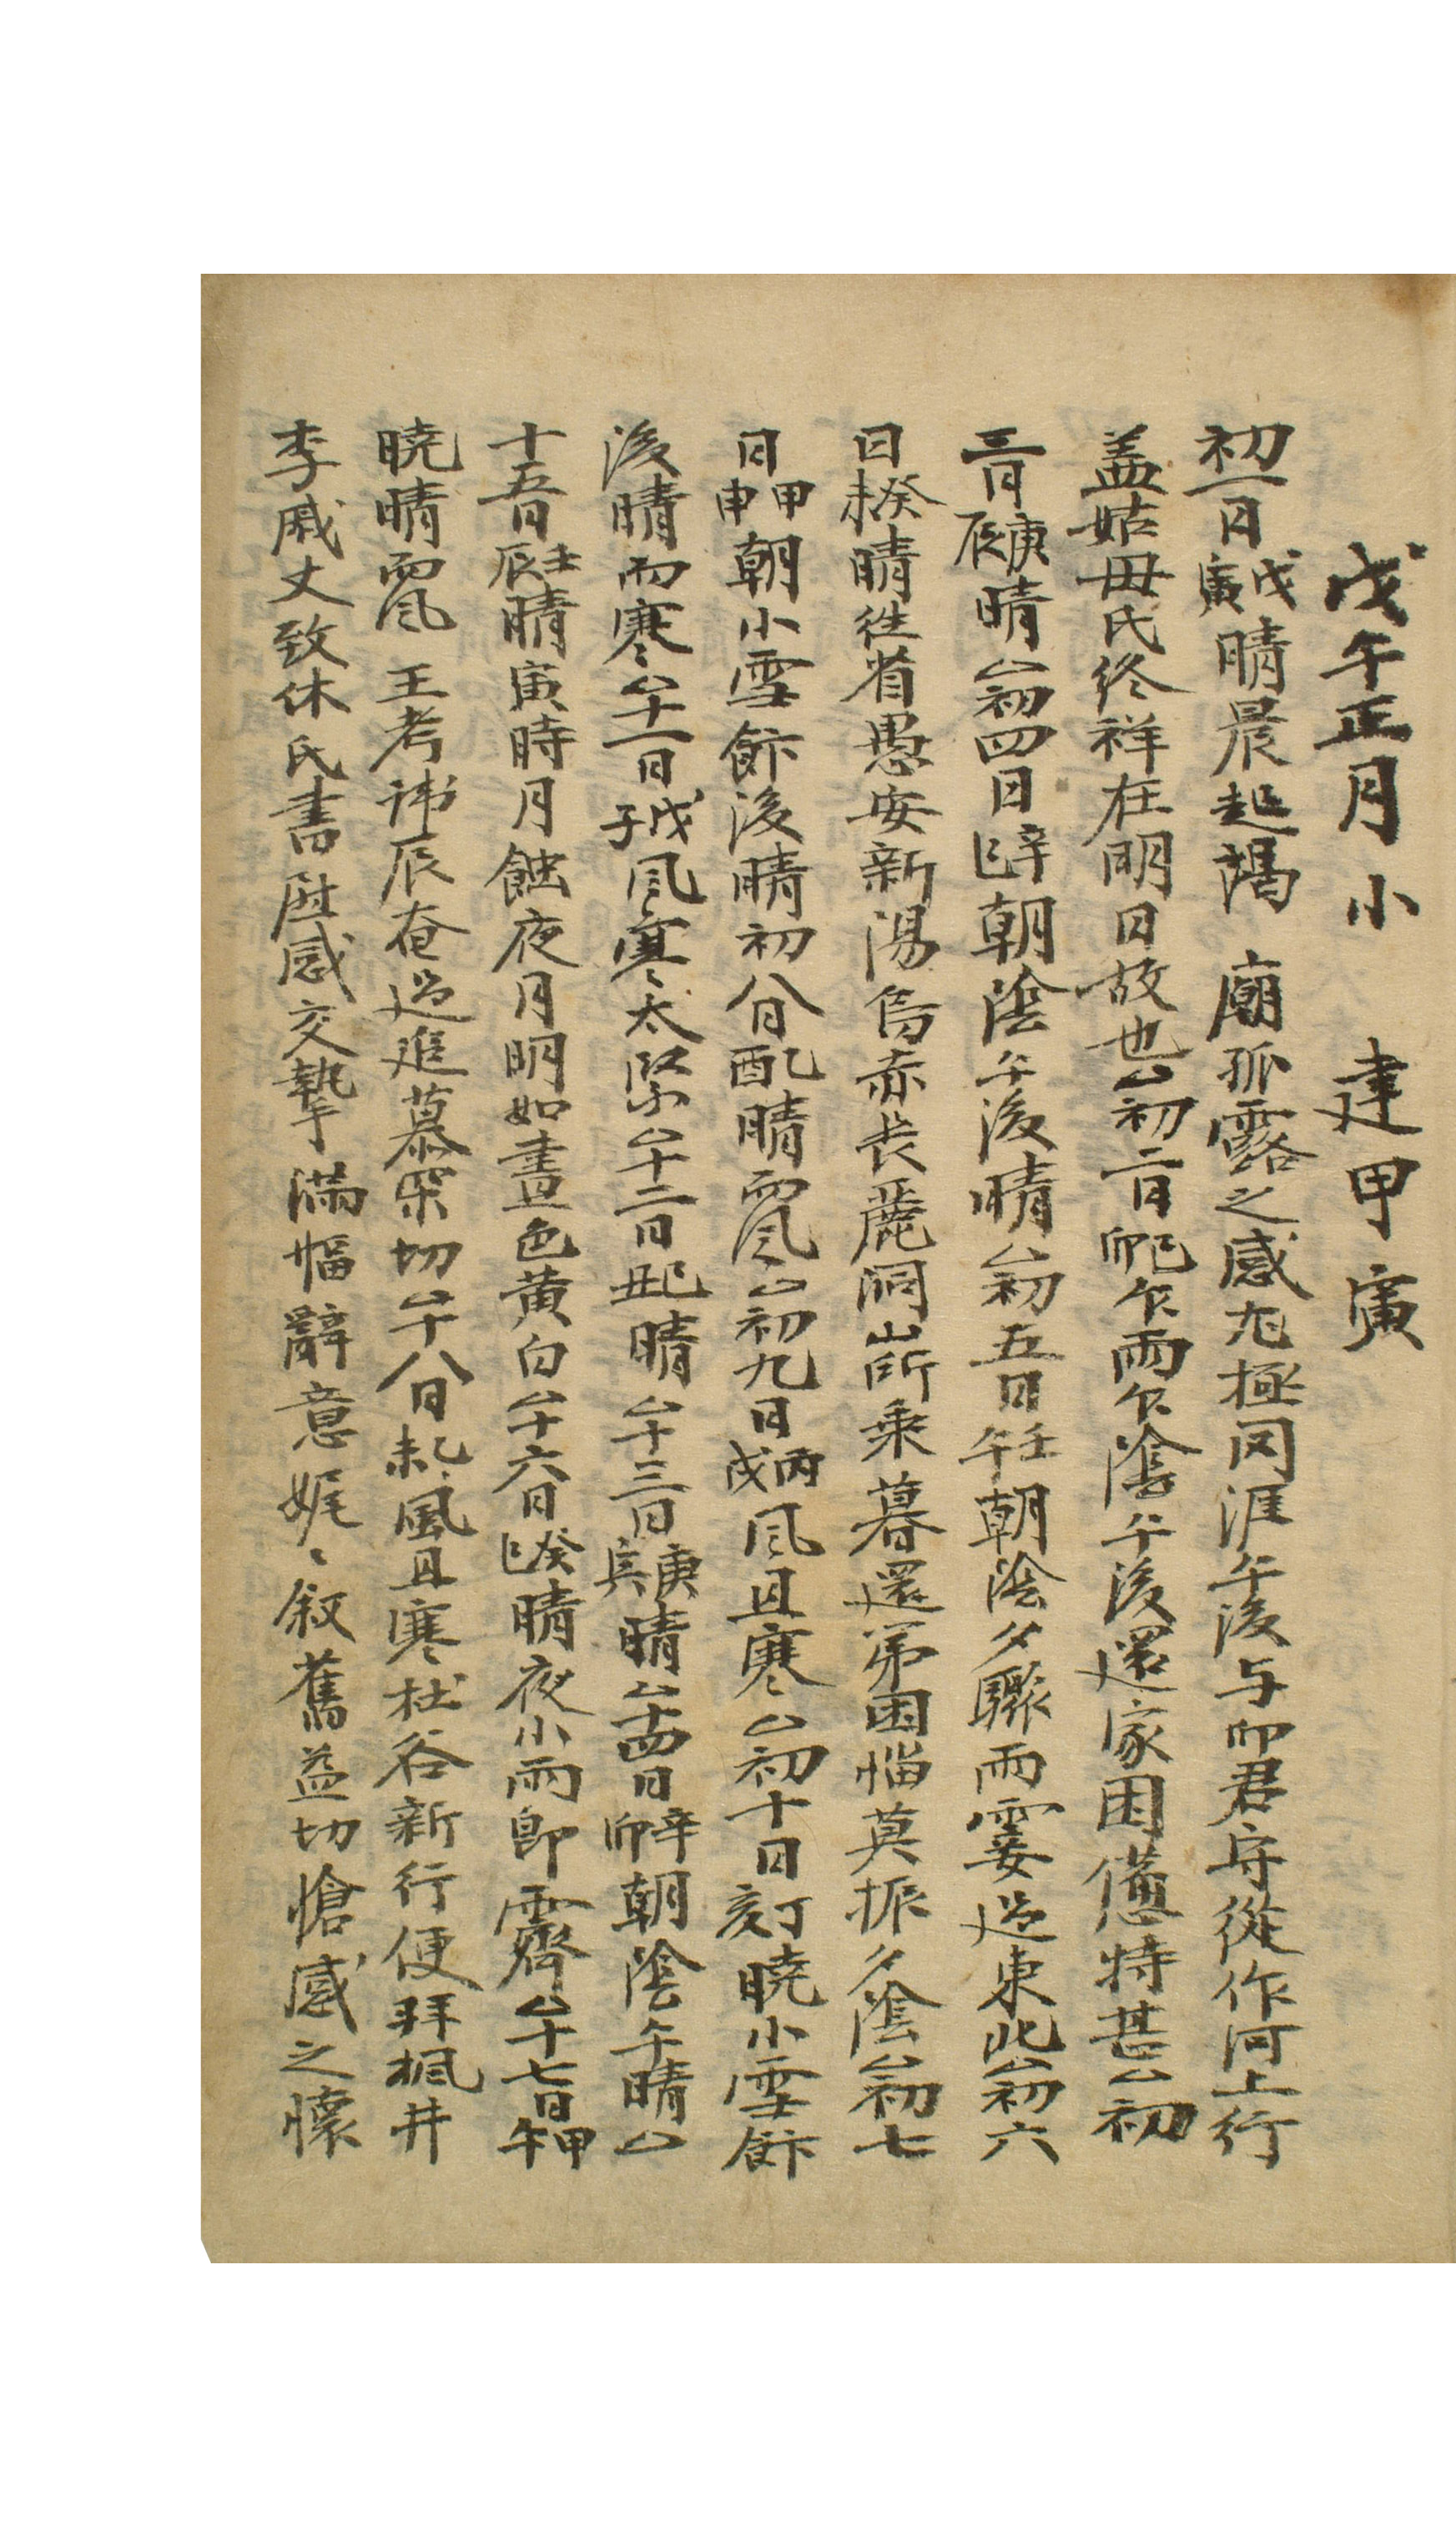 戊午正月小 建甲寅
初一日戊寅晴晨起謁 廟孤露之感尤極罔涯午後与卯君窂從作河上行
盖姑母氏終祥在明日故也△初二日己卯乍雨乍陰午後還家困憊特甚△初
三日庚辰晴△初四日辛巳朝陰午後晴△初五日壬午朝陰夕驟雨霎過東北△初六
日癸未晴徃省愚安新陽烏赤長麓洞山所乘暮還弟困惱莫振夕陰△初七
日甲申朝小雪飰後晴初八日乙酉晴而風△初九日丙戌風且寒△初十日丁亥曉小雪飰
後晴而寒△十一日戊子風寒太緊△十二日己丑晴△十三日庚寅晴△十四日辛卯朝陰午晴△
十五日壬辰晴寅時月蝕夜月明如晝色黄白△十六日癸巳晴夜小雨即霽△十七日甲午
曉晴而風 王考諱辰奄過追慕罙切△十八日乙未風且寒杜谷新行便拜楓井
李戚丈致休氏書慰感交摯滿幅辭意娓〻叙舊益切愴感之懷